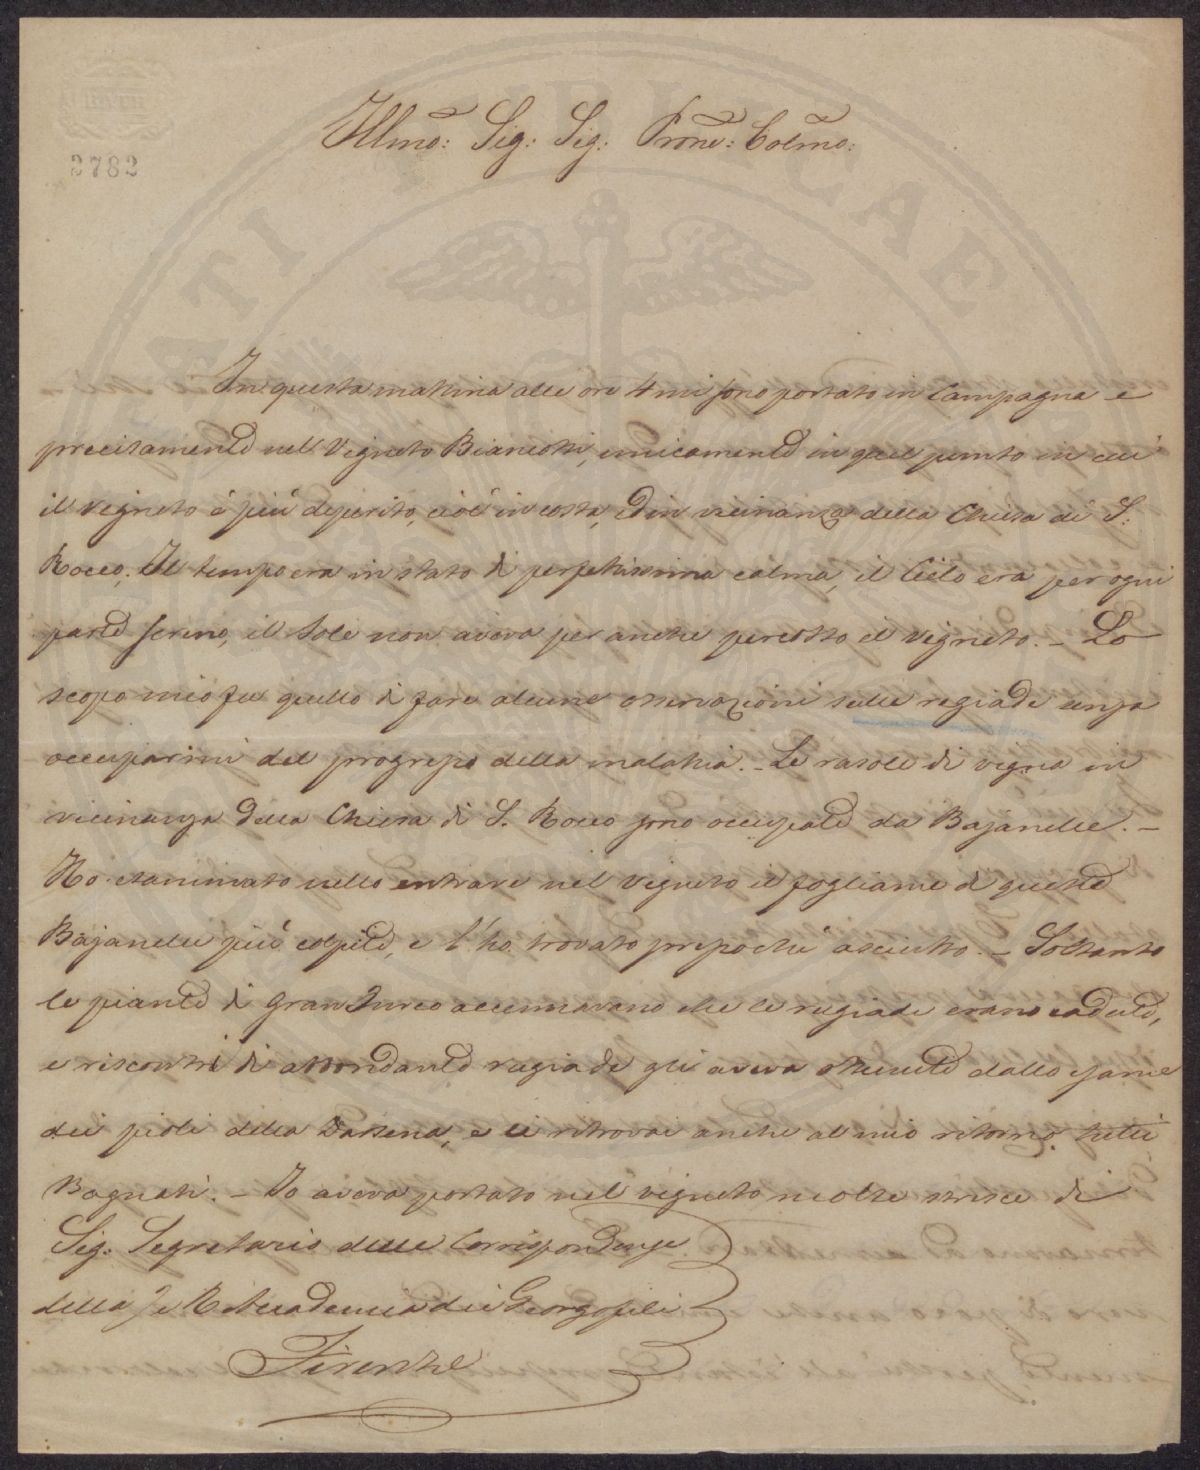 2782
Illmo: Sig: Sig: Prone: Colmo:
In questa mattina alle ore 4 mi sono portato in Campagna e
precisamente nel Vigneto Bianciotti, unicamente in quel punto in cui
il vigneto è più deperito, cioè in costa, ed in vicinanza della Chiesa di S:
Rocco. Il tempo era in stato di perfettissima calma, il Cielo era per ogni
parte sereno, il Sole non aveva per anche percosso il vigneto. - Lo
scopo mio fu quello di fare alcune osservazioni sulle rugiade senza
occuparmi del progresso della malattia. - Le rasole di vigna in
vicinanza della Chiesa di S. Rocco sono occupate da Bajanelle. -
Ho esaminato nello entrare nel vigneto il fogliame di queste
Bajanelle più colpite, e l'ho trovato pressochè asciutto. - Soltanto
le piante di Gran Turco accennavano che le rugiade erano cadute,
e riscontri di abbondante rugiade gli aveva ottenuti dallo esame
dei pioli della Darsena, e li ritrovai anche al mio ritorno tutti
Bagnati. - Io aveva portato nel vigneto molte strisce di
Sig: Segretario delle Corrispondenze
della I e R Accademia dei Georgofili
Firenze